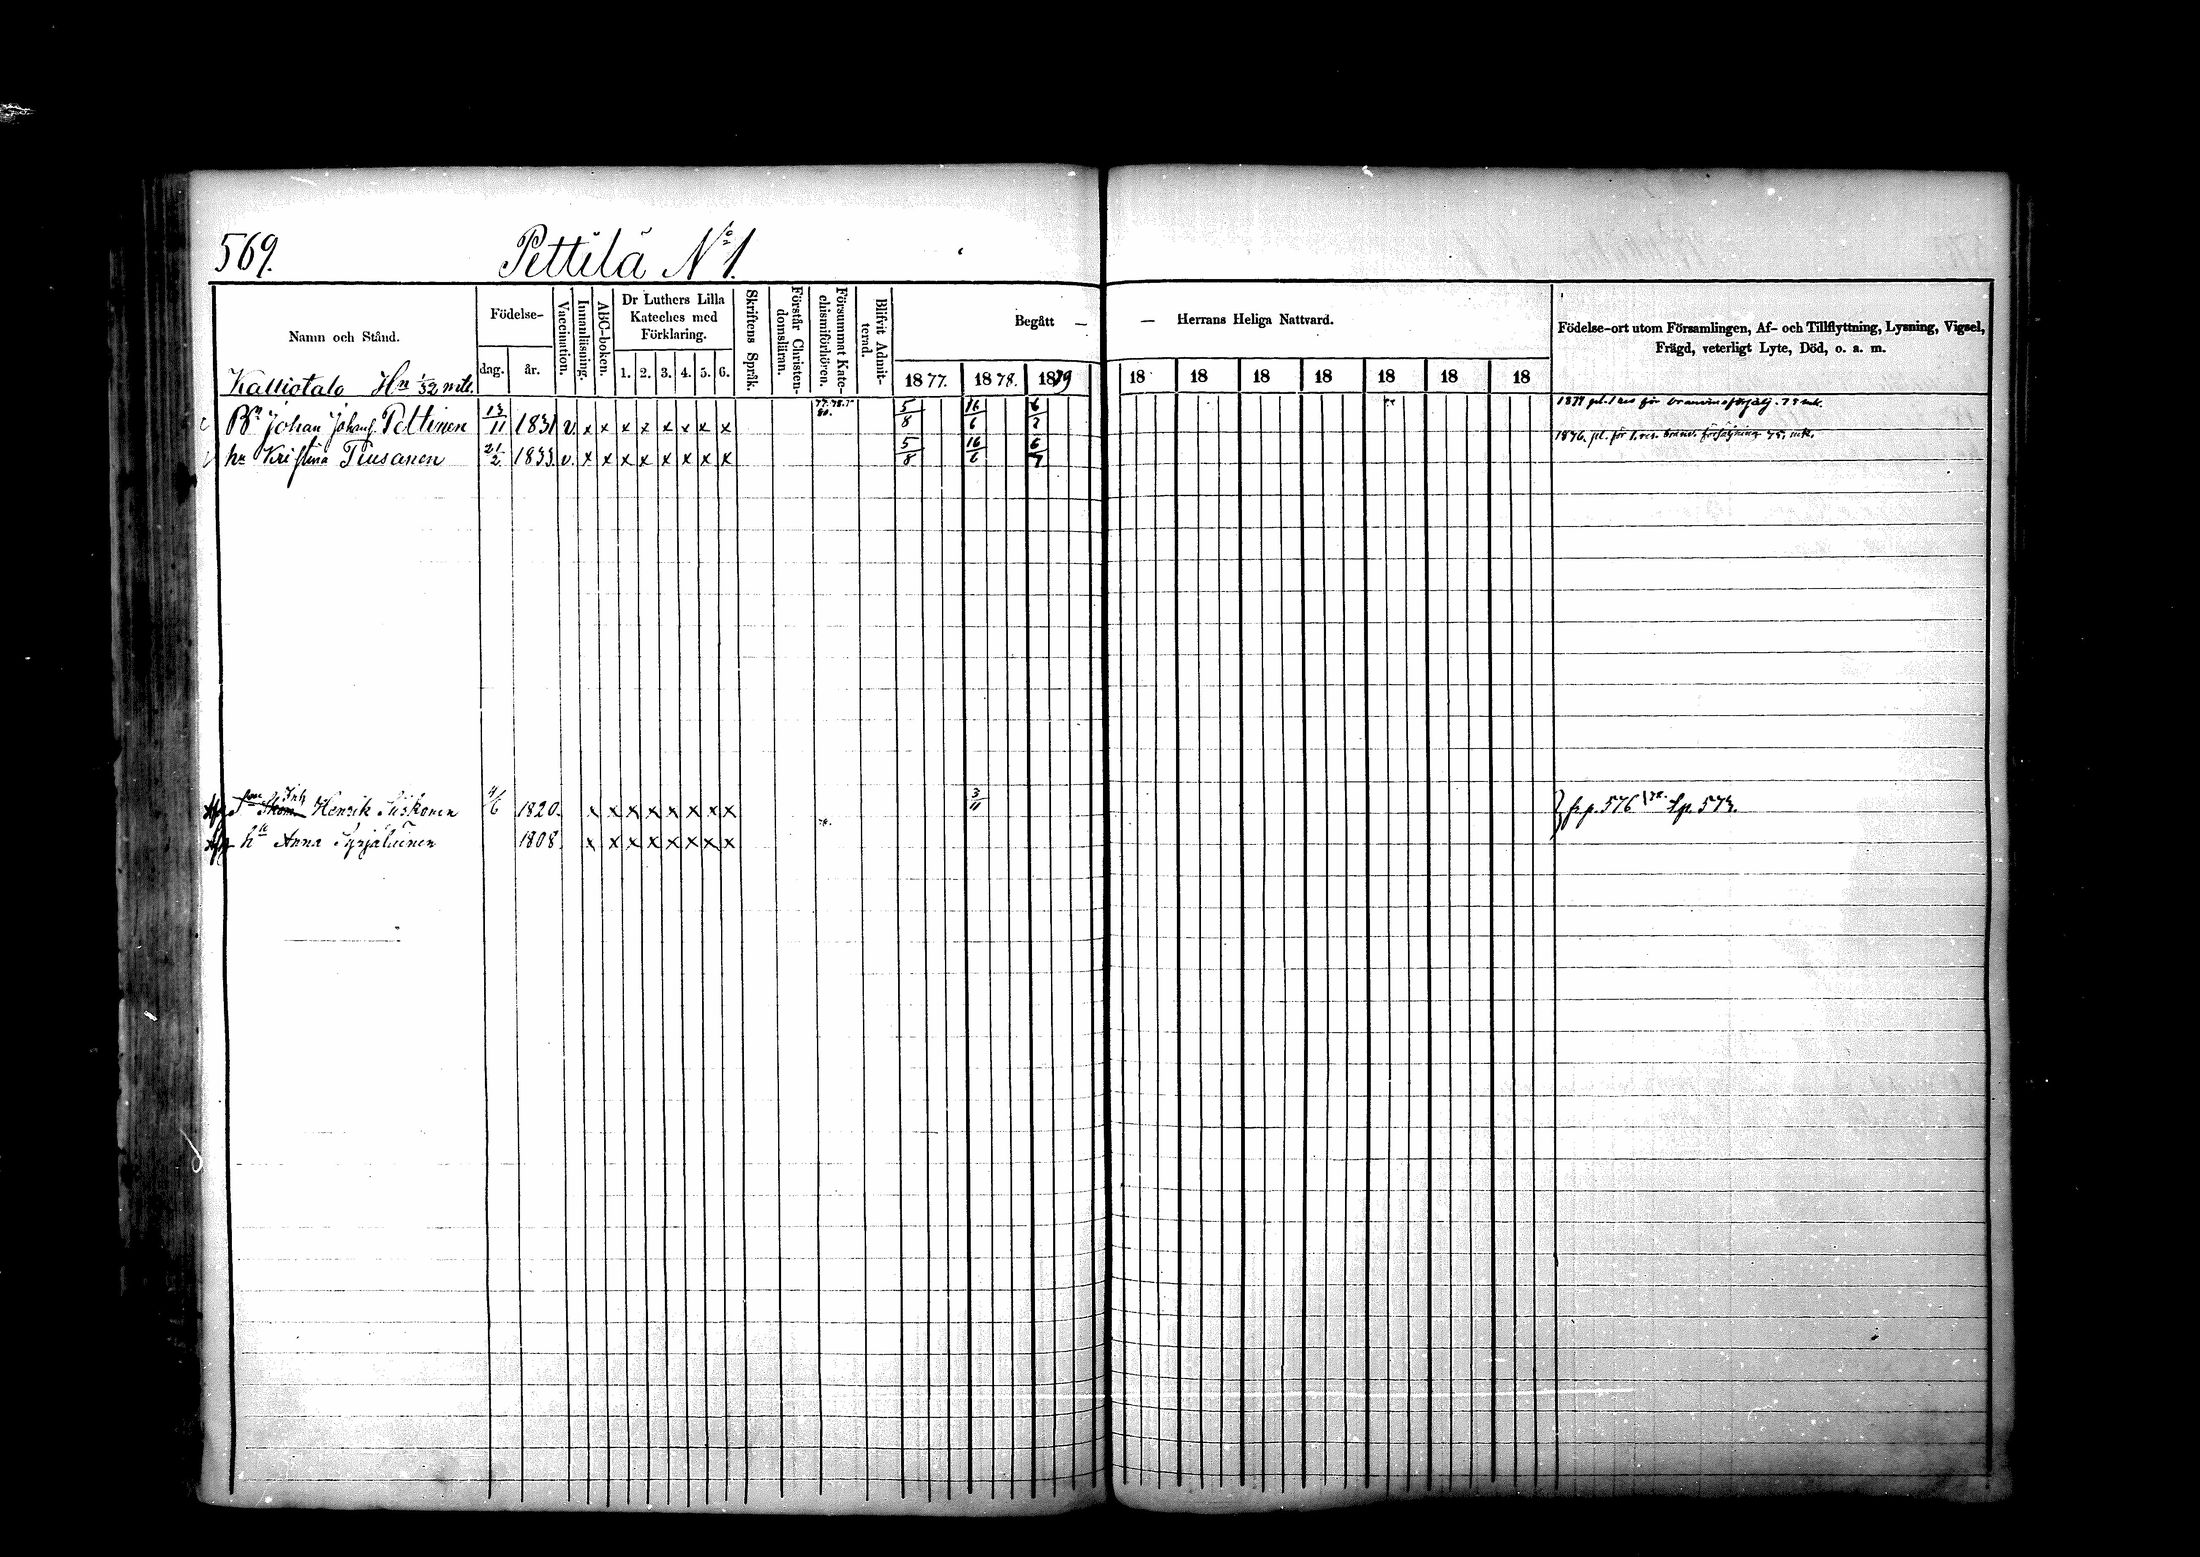 569. Pettilä No 1.
Namn och Stånd.
Födelse-
dag. år.
Vaccination.
Innanläsning.
ABC-boken.
Dr Luthers Lilla
Kateches med
Förklaring.
1. 2. 3. 4. 5. 6.
Skriftens Språk.
Förstår Christen-
domsläran.
Försummat Kate-
chismiförhören.
Blifvit Admit-
terad.
Begått — — Herrans Heliga Nattvard.
1877. 1878. 1879 18 18 18 18 18 18 18
Födelse-ort utom Församlingen, Af- och Tillflyttning, Lysning, Vigsel,
Frägd, veterligt Lyte, Död, o. a. m.
Kalliotalo Hn 1/32 mtl.
Bn Johan Johans. Peltinen 13/11 1831 v. x x x x x x x x 5/8 16/6 6/7
hu Kristina Tiusanen 21/2 1833. v. x x x x x x x x 5/8 16/6 6/7 1876. pl. för 1. res. bränv. försäljning 75. mk.
Inh Henrik 4/6 1820. x x x x x x x x 3/11 fr p. 576 /78. t p. 573.
hu Anna 1808. x x x x x x x x